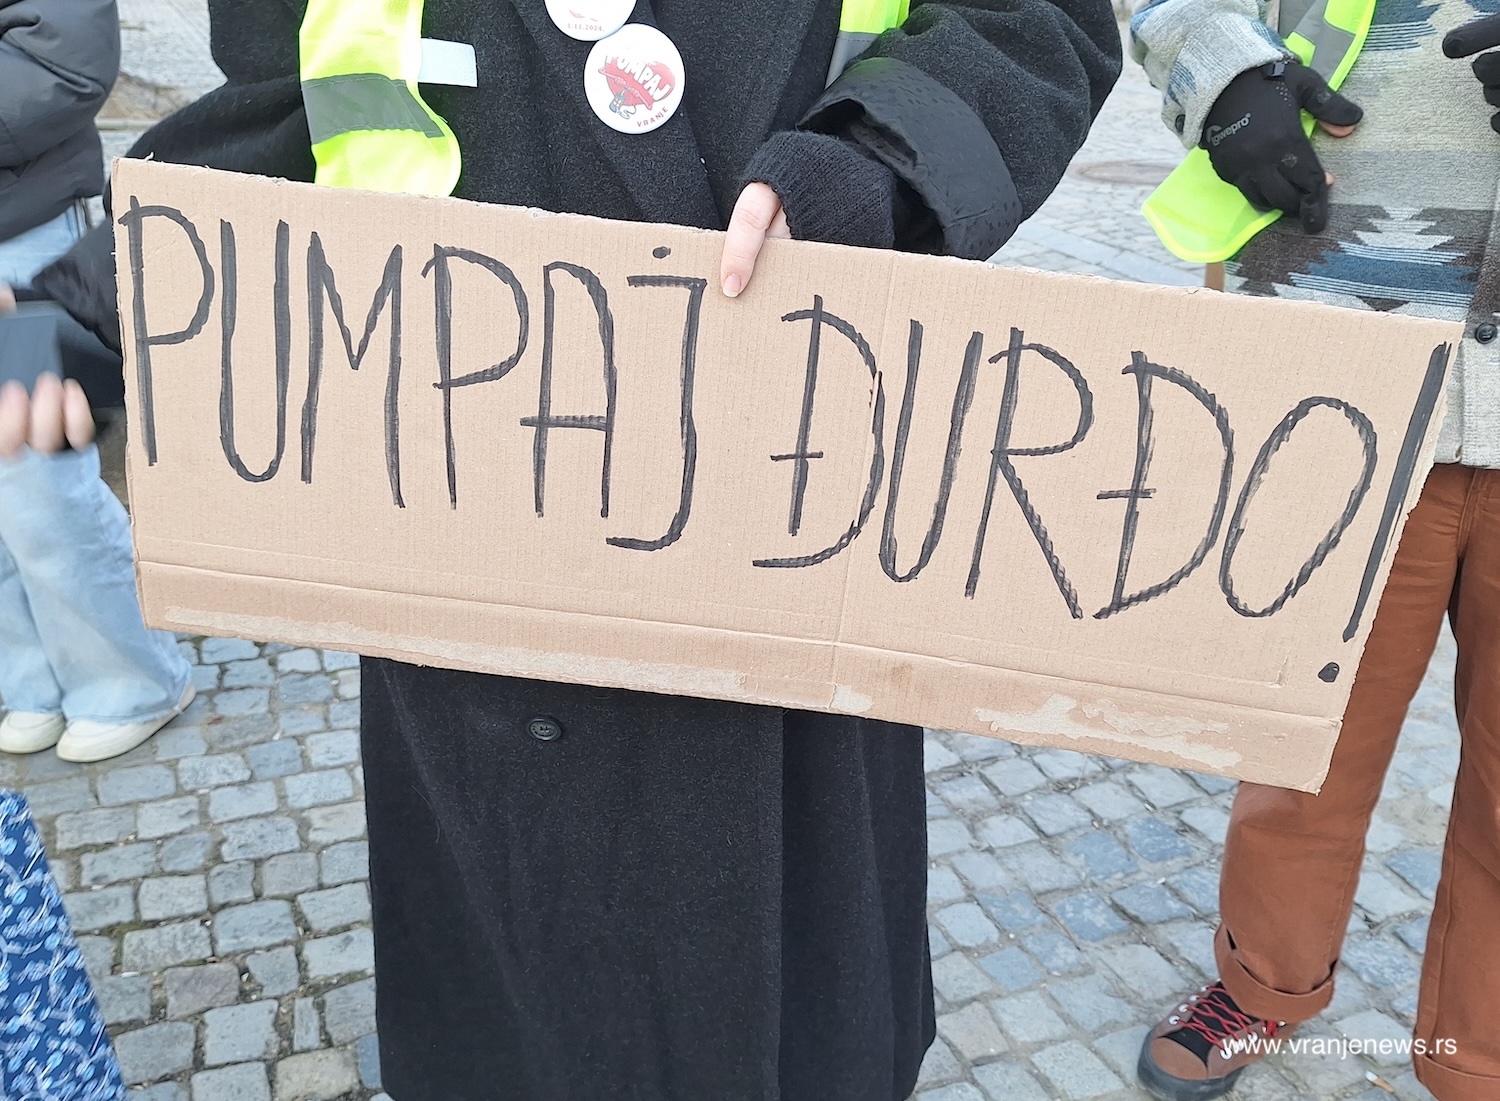 1.11.2024.
PUMPAJ
VRANJE
lowepro
PUMPAJ ĐURĐO!
www.vranjenews.rs